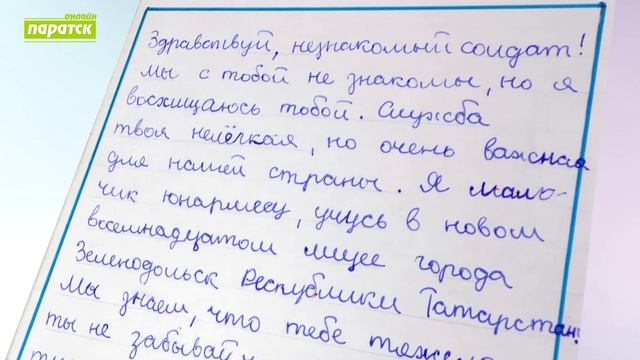 онлайн
ПАРАТСК
Здравствуй, незнакомый солдат!
Мы с тобой не знакомы, но я
восхищаюсь тобой. Служба
твоя нелёгкая, но очень важная
для нашей страны. Я маль-
чик юнармеец, учусь в новом
восемнадцатом лицее города
Зеленодольск Республики Татарстан.
Мы знаем, что тебе
ты не забывай